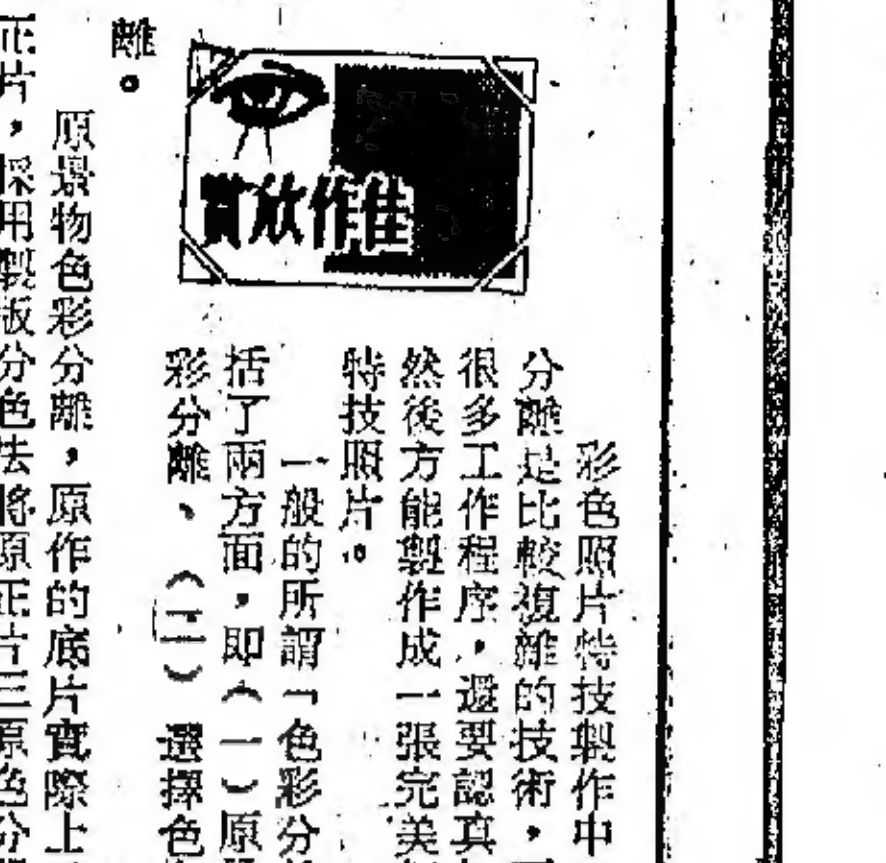 佳作欣賞
彩色照片特技製作中
分離是比較複雜的技術，
很多工作程序，還要認真
然後方能製作成一張完美
特技照片。
一般的所謂「色彩分
括了兩方面，即（一）原
彩分離、（二）選擇色
離。
原景物色彩分離，原作的底片實際上
正片，採用製版分色法將原正片三原色分